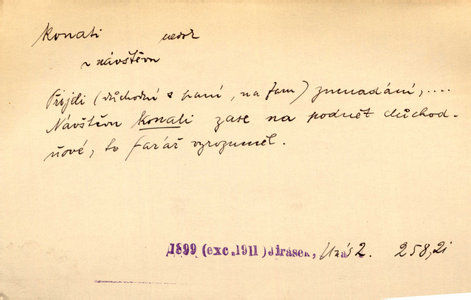 konati nedok
~ návštěvu
Přijeli (důchodní s paní, na faru) znenadání, ....
Návštěvu konali zase na podnět důchod-
ňové, to farář vyrozuměl.
1899 (exc. 1911) Jirásek, 2. 258, 21